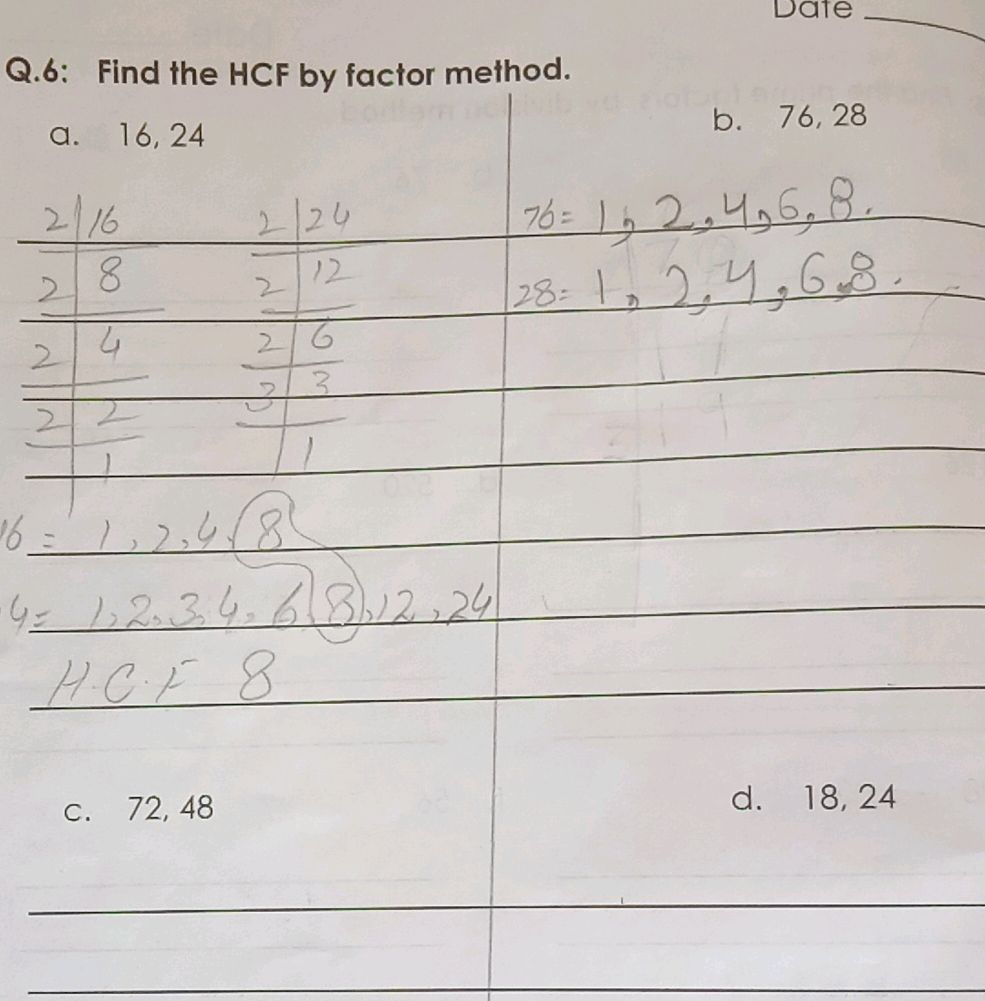 Date
Q.6: Find the HCF by factor method.
a. 16, 24
b. 76, 28
2 16
2 8
2 4
2 2
1
2 24
2 12
2 6
3 3
1
76= 1, 2, 4, 6, 8.
28= 1, 2, 4, 6, 8.
16 = 1, 2, 4, 8
4= 1, 2, 3, 4, 6, 8, 12, 24
H.C.F 8
c. 72, 48
d. 18, 24